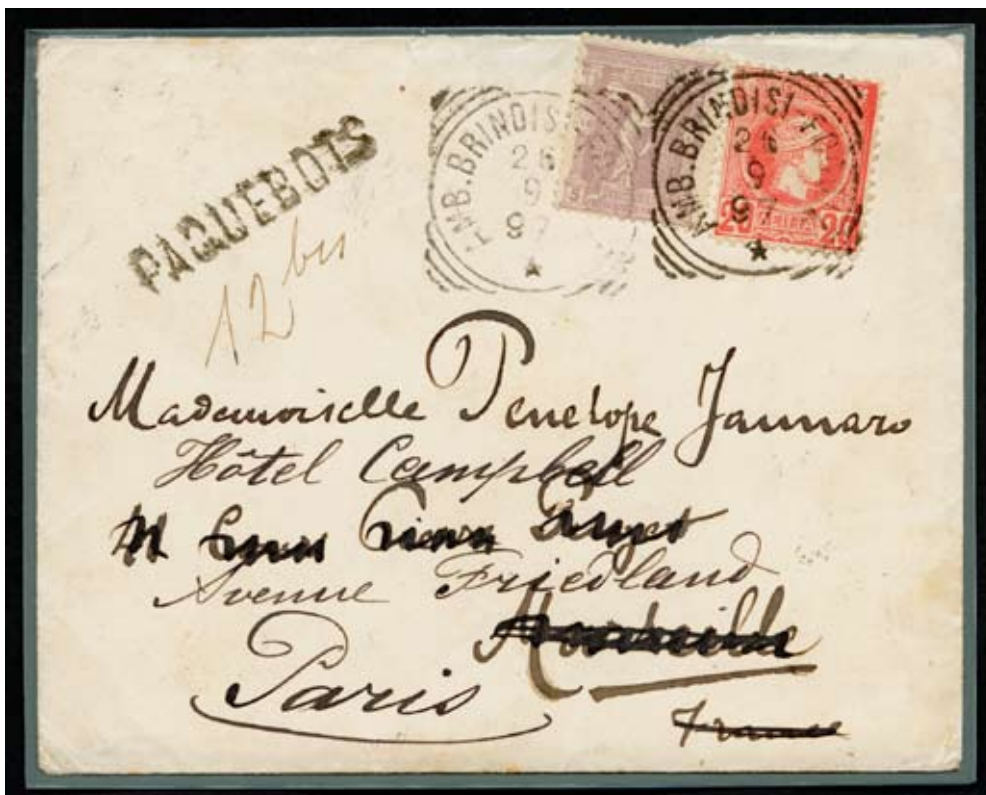 PAQUEBOTS
12 bis
AMB. BRINDISI
26
9
97
AMB. BRINDISI
26
9
97
20 20
Mademoiselle Penelope Jannaro
Hôtel Campbell
Avenue Friedland
Marseille
Paris
France